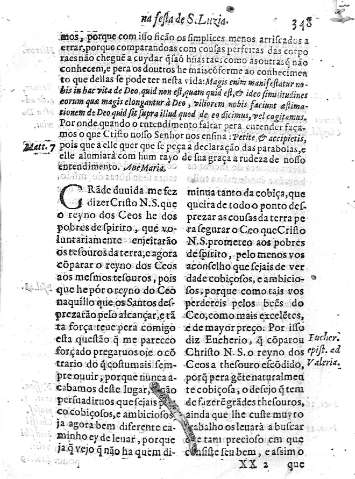 na festa de S. Luzia.
348
mos, porque com isso ficão os simplices menos arriscados a
errar, porque comparandoas com cousas perfeitas das corpo
raes não chegue a cuydar que são huãs taes como as outras que não
conhecem, e pera os doutros he mais cõforme ao conhecimen
to que dellas se pode ter nesta vida: Magis enim manifestatur no
bis in hac vita de Deo, quid non est, quam quid est, & ideo similitudines
eorum quæ magis elongantur à Deo, viliorem nobis faciunt æstima
tionem de Deo quid sit supra illud quod de eo dicimus, vel cogitamus.
Por onde quando o entendimento faltar pera entender faça
mos o que Cristo nosso Senhor nos ensina: Petite & accipietis,
Matt. 7
pois que a elle quer que se peça a declaração das parabolas, e
elle alumiará com hum rayo de sua graça a rudeza de nosso
entendimento. Ave Maria.
GRãde duuida me fez
dizer Cristo N. S. que
o reyno dos Ceos he dos
pobres de spirito, que vo
luntariamente enjeitarão
os tesouros da terra, e agora
cõparar o reyno dos Ceos
aos mesmos tesouros, pois
que he pór o reyno do Ceo
naquillo que os Santos des-
prezarão pelo alcançar, e tã
ta força teue pera comigo
esta questão q̃ me pareceo
forçado pregaruos oje o cõ
trario do q̃ costumais sem-
pre ouuir, porque nunca a-
cabamos deste lugar,
persuadiruos que sejais
co cobiçosos, e ambiciosos
ja agora bem diferente ca
minho ey de leuar, porque
ja q̃ vejo q̃ não ha quem di-
minua tanto da cobiça, que
queira de todo o ponto des-
prezar as cousas da terra pe
ra segurar o Ceo que Cristo
N. S. prometeo aos pobres
de spirito, pelo menos vos
aconselho que sejais de ver
dade cobiçosos, e ambicio-
sos, porque como tais vos
perdereis pelos beẽs do
Ceo, como mais excelẽtes,
e de mayor preço. Por isso
diz Eucherio, q̃ cõparou
Christo N. S. o reyno dos
Ceos a thesouro escõdido,
porq̃ pera gẽte naturalmen
te cobiçosa, o desejo q̃ tem
de fazerẽ grãdes thesouros,
ainda que lhe custe muyto
trabalho os leuará a buscar
o tam precioso em que
consiste seu bem, e assim o
Eucher.
epist. ad
Valeria.
XX 2 que